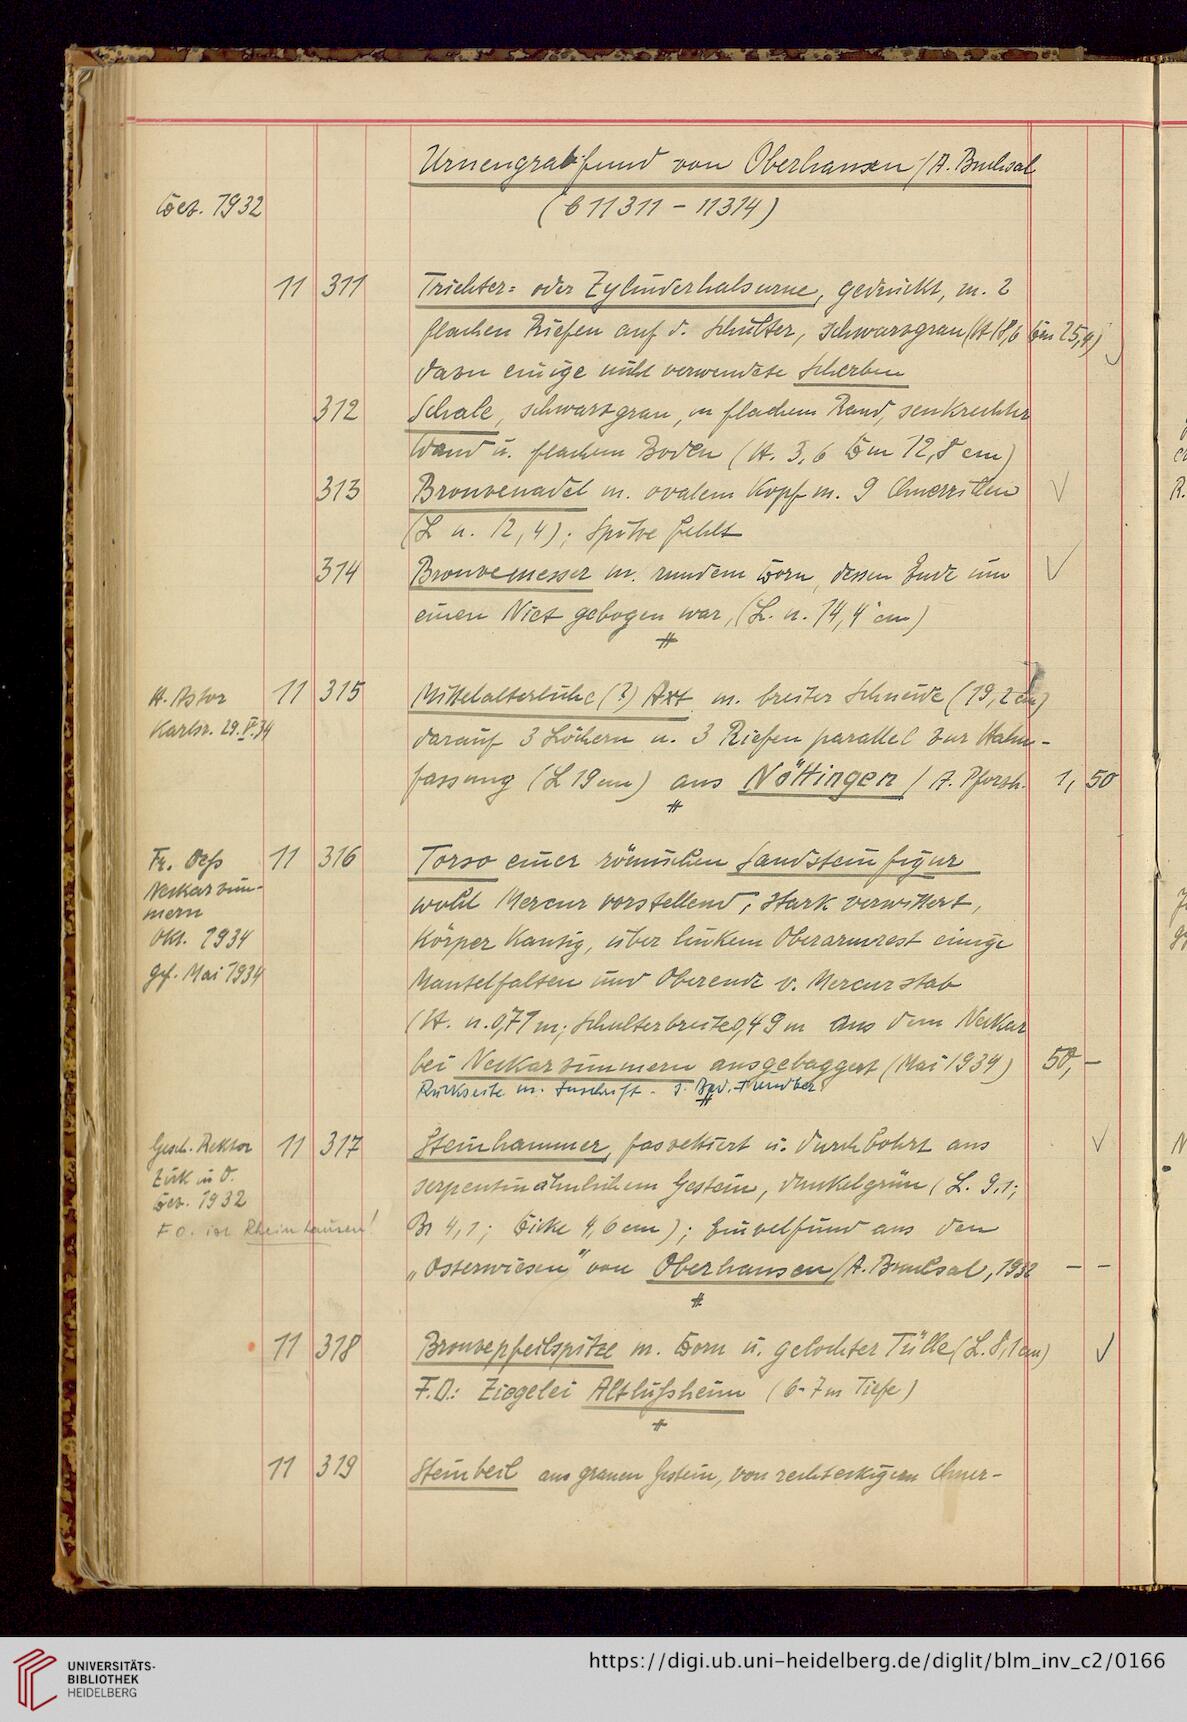 Urnengrabfund von Oberhausen / A. Bruchsal
Dez. 1932
(C 11311 – 11314)
11 311 Trichter= oder Zylinderhalsurne, gedrückt, m. 2
flachen Riefen auf d. Schulter, schwarzgrau (H 18,6 Dm 25,4)
dazu einige nicht verwendete Scherben
312 Schale, schwarzgrau, m flachem Rand, senkrechter
Wand u. flachem Boden (H. 3,6 Dm 12,8 cm)
313 Bronzenadel m. ovalem Kopf m. 9 Querrillen
(L n. 12,4); Spitze fehlt
314 Bronzemesser m. rundem Dorn, dessen Ende um
einen Niet gebogen war, (L. n. 14,4 cm)
H. Astor
Karlsr. 29.V.34
11 315 Mittelalterliche (?) Axt m. breiter Schneide (19,2 cm)
darauf 3 Löchern u. 3 Riefen parallel zur Halm-
fassung (L 19 cm) aus Nöttingen / A. Pforzh. 1,50
Fr. Heß
Neckarzim-
mern
Okt. 1934
gef. Mai 1934
11 316 Torso einer römischen Sandsteinfigur
wohl Mercur vorstellend, stark verwittert,
Körper kantig, über linkem Oberarmrest einige
Mantelfalten und Oberende v. Mercurstab
(H. n. 0,71 m; Schulterbreite 0,49 m Aus dem Neckar
bei Neckarzimmern ausgebaggert (Mai 1934) 50,–
Rückseite m. Inschrift. s. Bad. Fundber.
Gesch. Rektor
Zirk in O.
Dez. 1932
F.O. ist Rheinhausen!
11 317 Steinhammer, fassettiert u. durchbohrt aus
serpentinähnlichem Gestein, dunkelgrün (L. 9,1;
Br 4,1; Dicke 4,6 cm); Einzelfund aus den
„Osterwiesen" von Oberhausen / A. Bruchsal, 1932 – –
11 318 Bronzepfeilspitze m. Dorn u. gelochter Tülle (L. 8,1 cm)
F.O.: Ziegelei Altlußheim (6-7 m Tiefe)
11 319 Steinbeil aus grauem Gestein, von rechteckigem Quer-
UNIVERSITÄTS-
BIBLIOTHEK
HEIDELBERG
https://digi.ub.uni-heidelberg.de/diglit/blm_inv_c2/0166